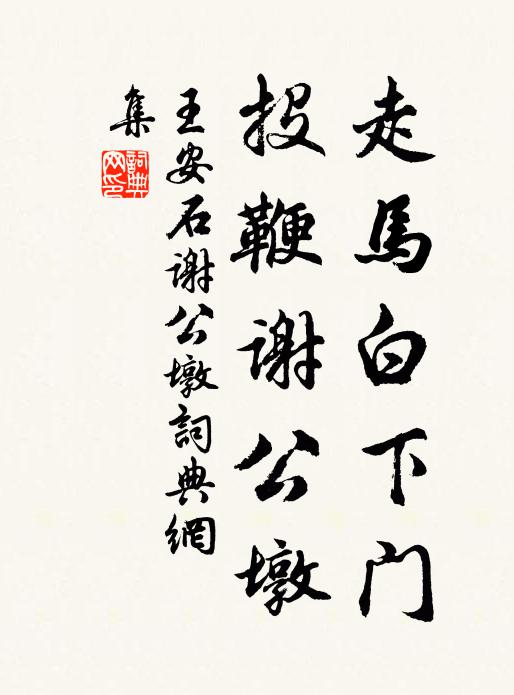 走馬白下门
投鞭谢公墩
王安石谢公墩詞典網
集
詞典
网印